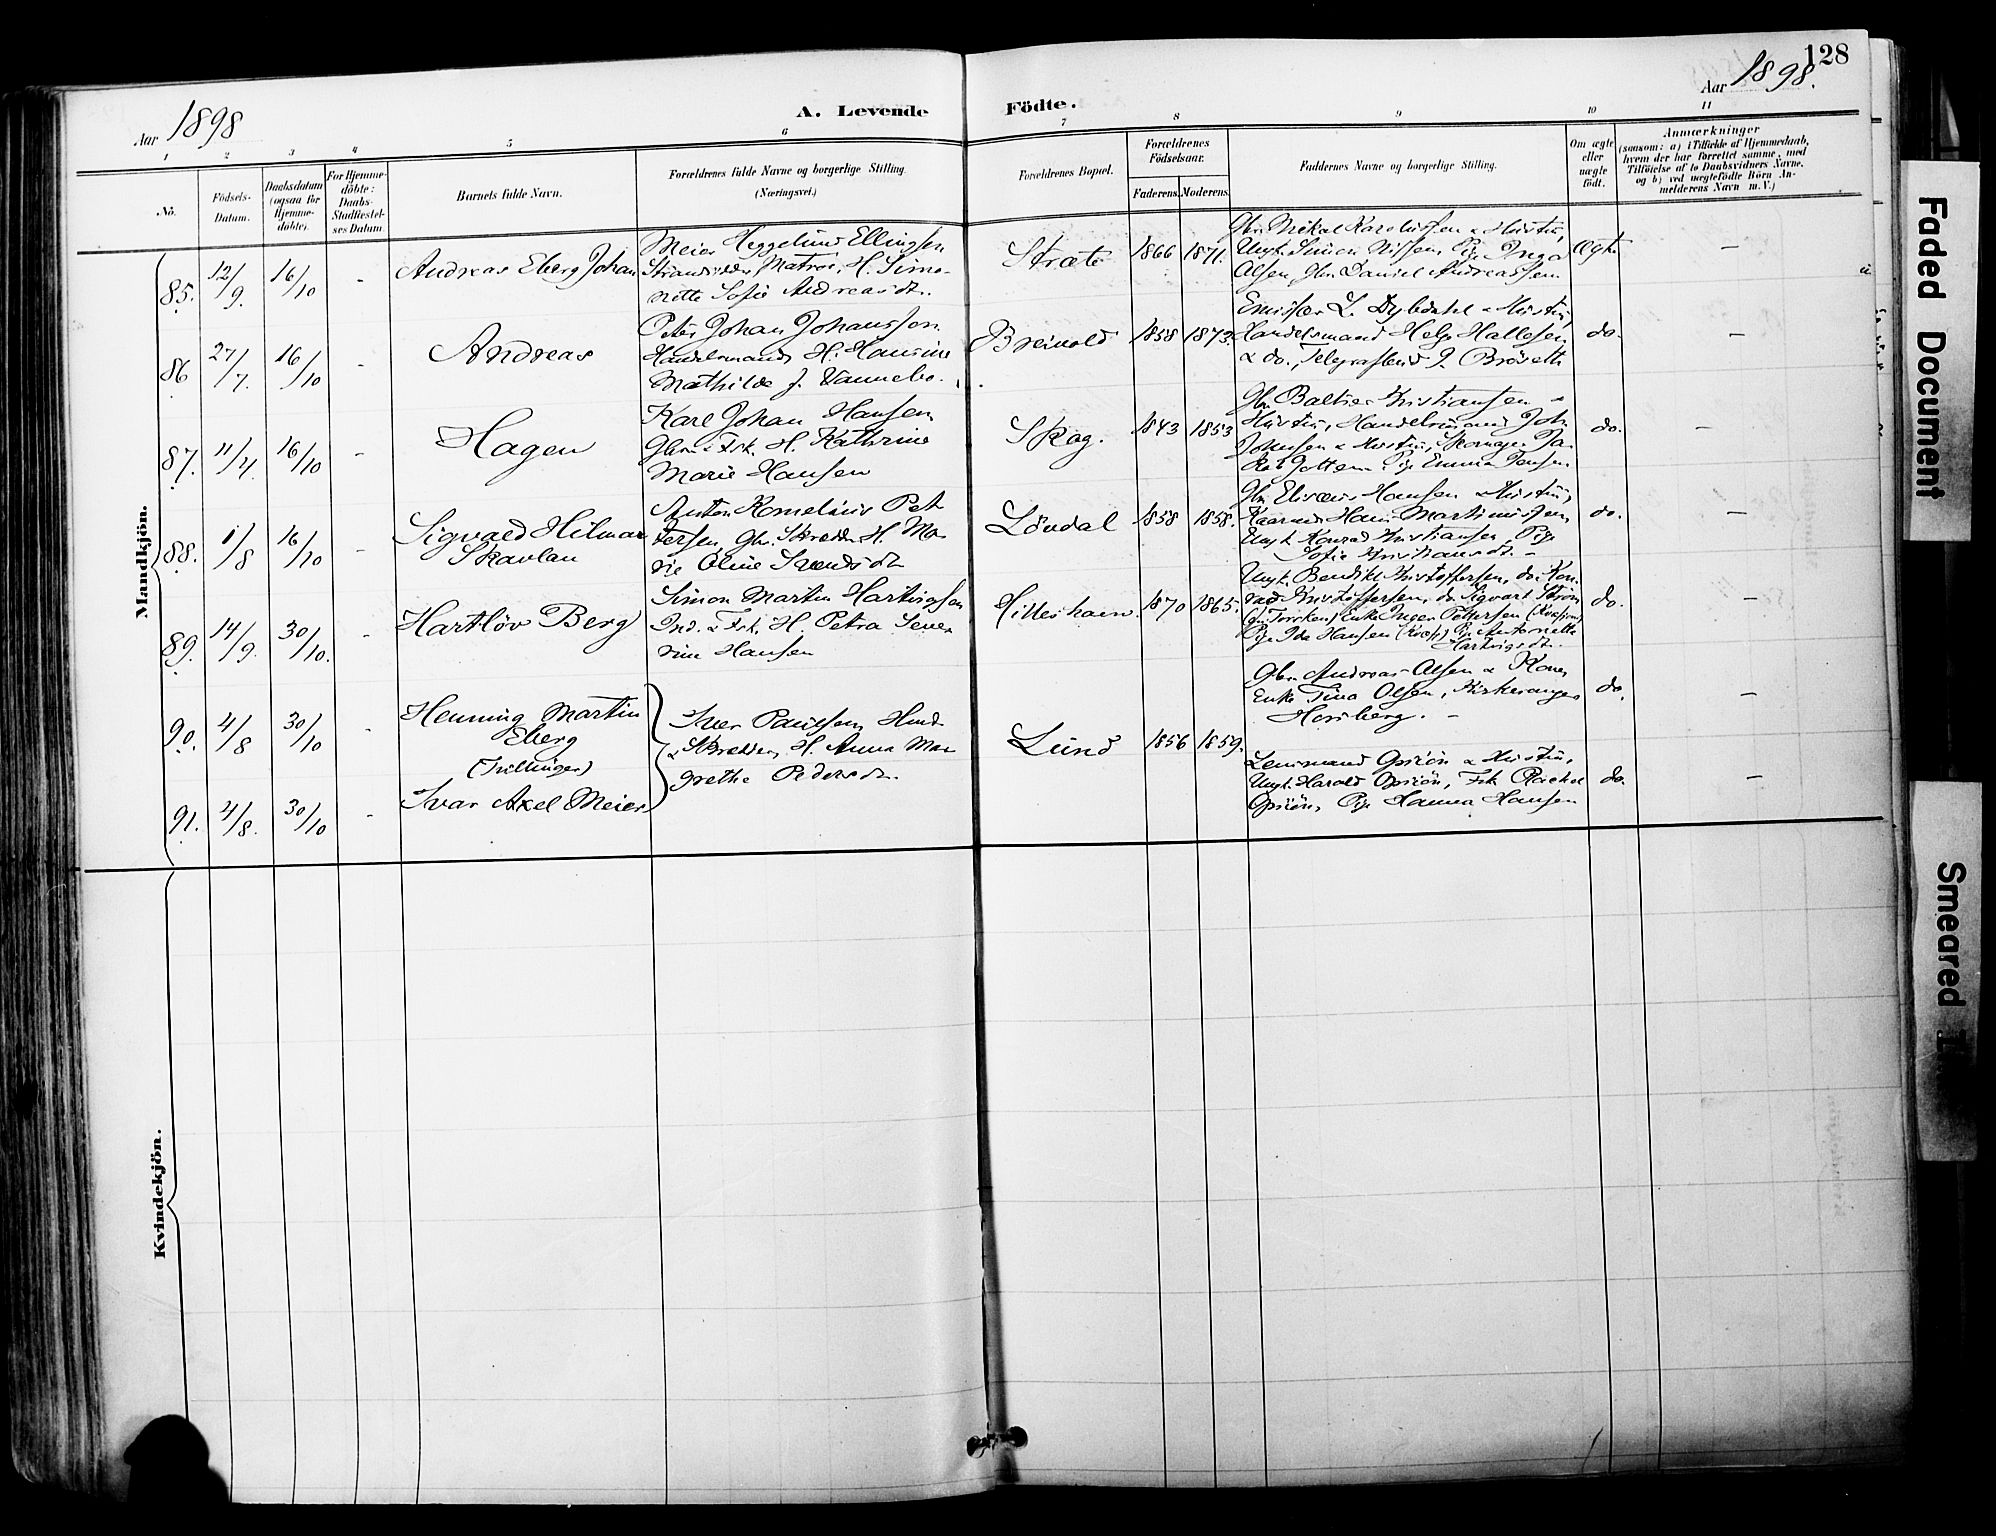 128
Aar 1898
A. Levende
Födte.
Aar 1898.
1 2 3 4 5 6 7 8 9 10 11
No.
Födsels-
Datum.
Daabsdatum
(ogsaa for
Hjemme-
døbte).
For Hjemme-
döbte:
Daabs-
Stadfæstel-
ses Datum
Barnets fulde Navn.
Forældrenes fulde Navne og borgerlige Stilling.
(Næringsvei.)
Forældrenes Bopæl.
Forældrenes
Födselsaar.
Faderens. Moderens.
Faddernes Navne og borgerlige Stilling.
Om ægte
eller
uægte
födt.
Anmærkninger
(saasom: a) i Tilfælde af Hjemmedaab,
hvem der har forrettet samme, med
Tilföielse af to Daabsvidners Navne,
og b) ved uægtefödte Börn An-
melderens Navn m.V.)
Mandkjön.
85. 12/9. 16/10 - Andreas Eberg Johan
Meier Heggelund Ellingsen
Strandsidder, Matros, H. Simo-
nette Sofie Andreasdt.
Stræte 1866 1871.
Gbr. Mikal Karolussen & Hustru,
Ungk. Simon Nissen, Pige Inga
Olsen, Gbr. Daniel Andreassen
Ægte -
86 27/7. 16/10 - Andreas
Peter Johan Johansson
Handelsmand, H. Hansine
Mathilde f. Vannebo.
Breivold 1858 1873
Emissær L. Dybdahl & Hustru,
Handelsmand Helge Hallesen
& do., Telegrafbud
do. -
87. 11/4. 16/10 - Hagen
Karl Johan Hansen
Gbr. & Fsk. H. Kathrine
Marie Hansen
Skog. 1843 1853
Gbr. Baltser Kristiansen &
Hustru, Handelsmand Joh.
Johnsen & Hustru, Skomager Ja-
kob Pige Emma Jensen
do. -
88. 1/8 16/10 - Sigvald Hilmar
Skavlan
Anton Kornelius Pet
tersen, Gbr. Skrædder H. Ma-
rie Oline Svendsdt.
Lövdal 1858 1858.
Gbr. Eliseus Hansen & Hustru,
Kaarmd Hans Martinussen,
Ungk. Konrad Kristiansen, Pige
Sofie Kristiansdt. -
do. -
89. 14/9. 30/10. - Hartlöv Berg
Simon Martin Hartvigsen
Ind. & Fsk. H. Petra Seve
rine Hansen
Hilleshavn. 1870 1865.
Ungk. Bendikt Kristoffersen, do. Kon-
rad Kristoffersen, do. Sigvart Ström
(fra Torsken) Enke Inger Pettersen
Pige Ida Hansen Pige Antonette
Hartvigsdt.
do. -
90. 4/8 30/10 - Henning Martin
Eberg
(Tvillinger)
Iver Paulsen, Husmd
& Skrædder, H. Anna Mar
grethe Pedersdt.
Lund 1856 1859.
Gbr. Andreas Olsen & Kone,
Enke Tina Olsen, Kirkesanger
Horsberg. -
do. -
91. 4/8. 30/10 - Ivar Axel Meier
Lensmand & Hustru,
Ungk. Harald Frk. Rachel
Pige Hanna Hansen
do. -
Kvindekjön.
Faded Document
Smeared